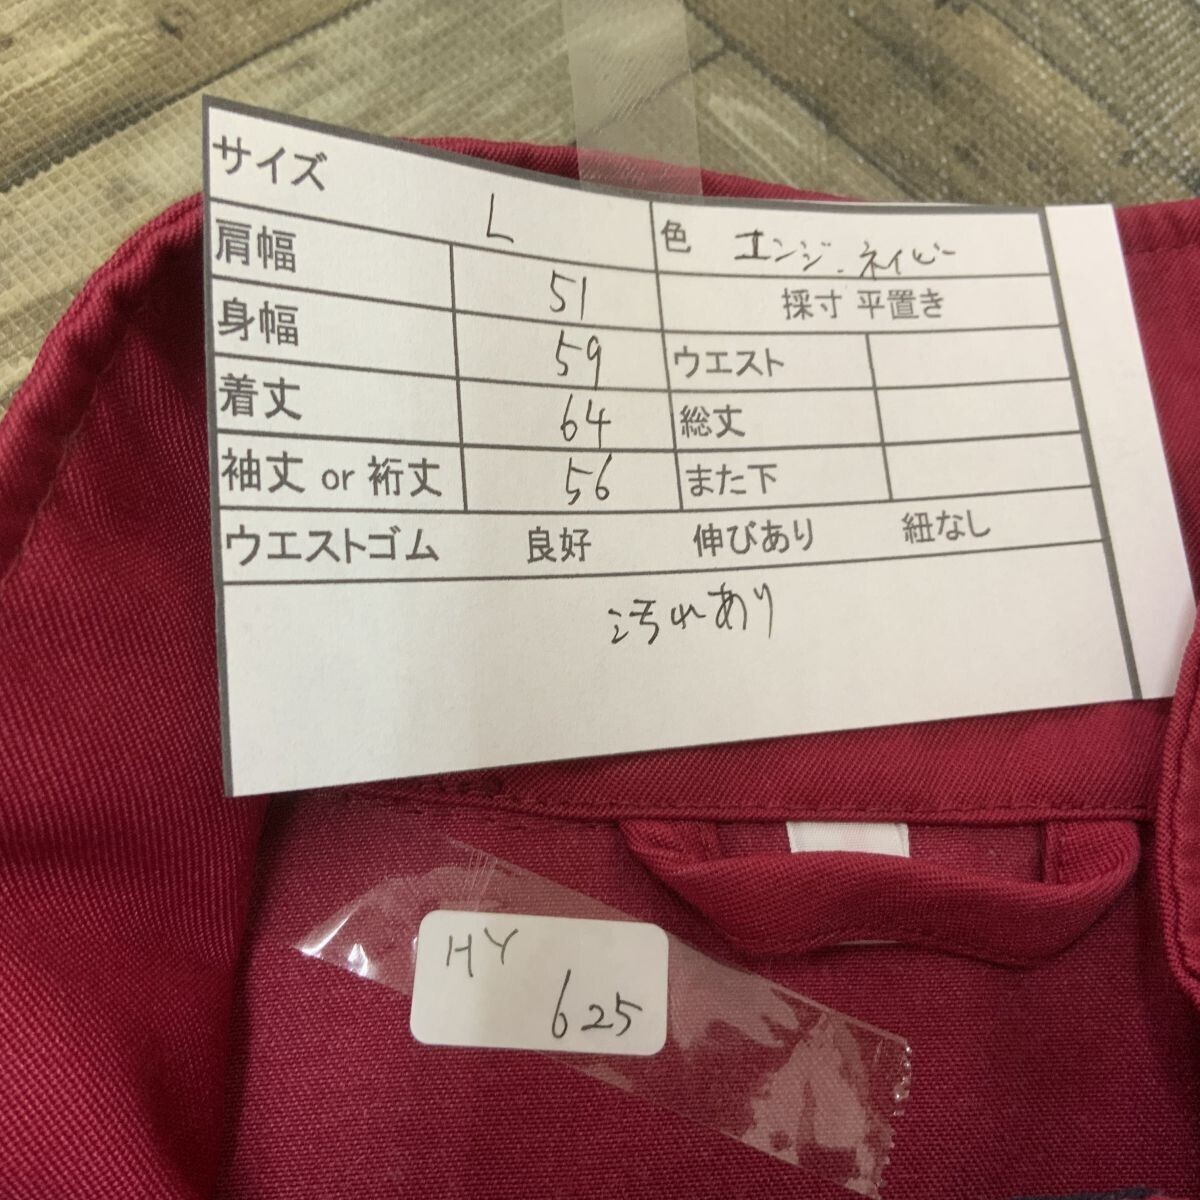 サイズ L
色 エンジ.ネイビー
肩幅 51
採寸 平置き
身幅 59
ウエスト
着丈 64
総丈
袖丈 or 裄丈 56
また下
ウエストゴム 良好 伸びあり 紐なし
汚れあり
HY
625